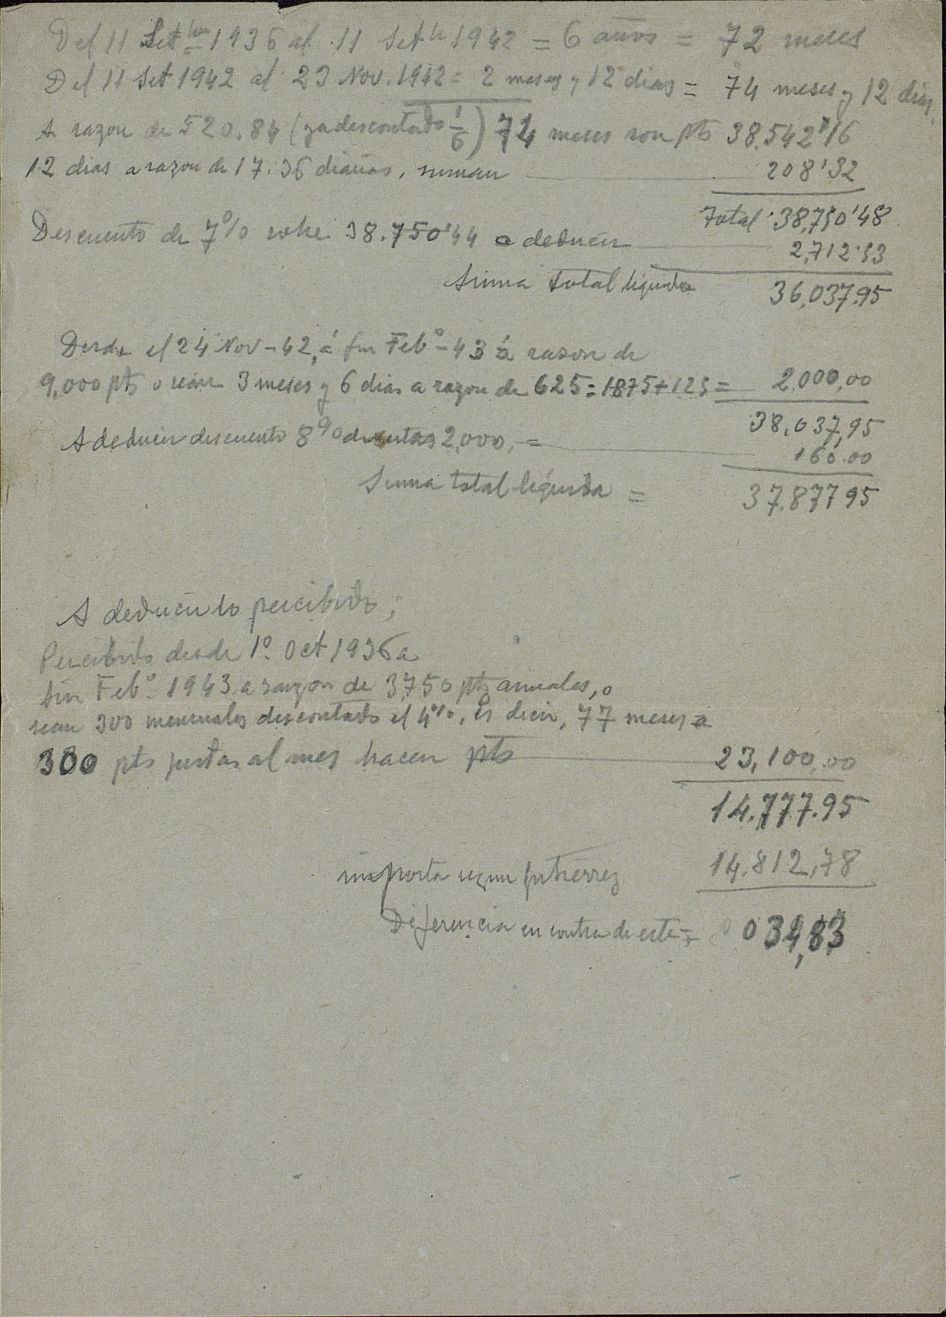 Del 11 Set bre 1936 al 11 Set bre 1942 = 6 años = 72 meses
Del 11 Set 1942 al 23 Nov. 1942 = 2 meses y 12 dias = 74 meses y 12 dias
A razon de 520.84 (ya descontado 1/6) 74 meses son pts 38,542'16
12 dias a razon de 17.36 diarias, suman 208'32
Total 38,750'48
Descuento de 7% sobre 38.750'44 a deducir 2,712.53
Suma total liquida 36,037.95
Desde el 24 Nov-42, á fin Feb.º-43 á razon de
9,000 pts o sean 3 meses y 6 dias a razon de 625 = 1875+125 = 2,000,00
38,037,95
A deducir descuento 8% de estas 2,000,- = 160.00
Suma total liquida = 37.877 95
A deducir lo percibido;
Percibido desde 1º. Oct 1936 a
fin Feb.º 1943 a razon de 3750 pts anuales, o
sean 300 mensuales descontado el 4%, es decir, 77 meses a
300 pts justas al mes hacen pts 23,100,00
14.777.95
importa segun Gutierrez 14.812,78
Diferencia en contra de este = 0 034,83